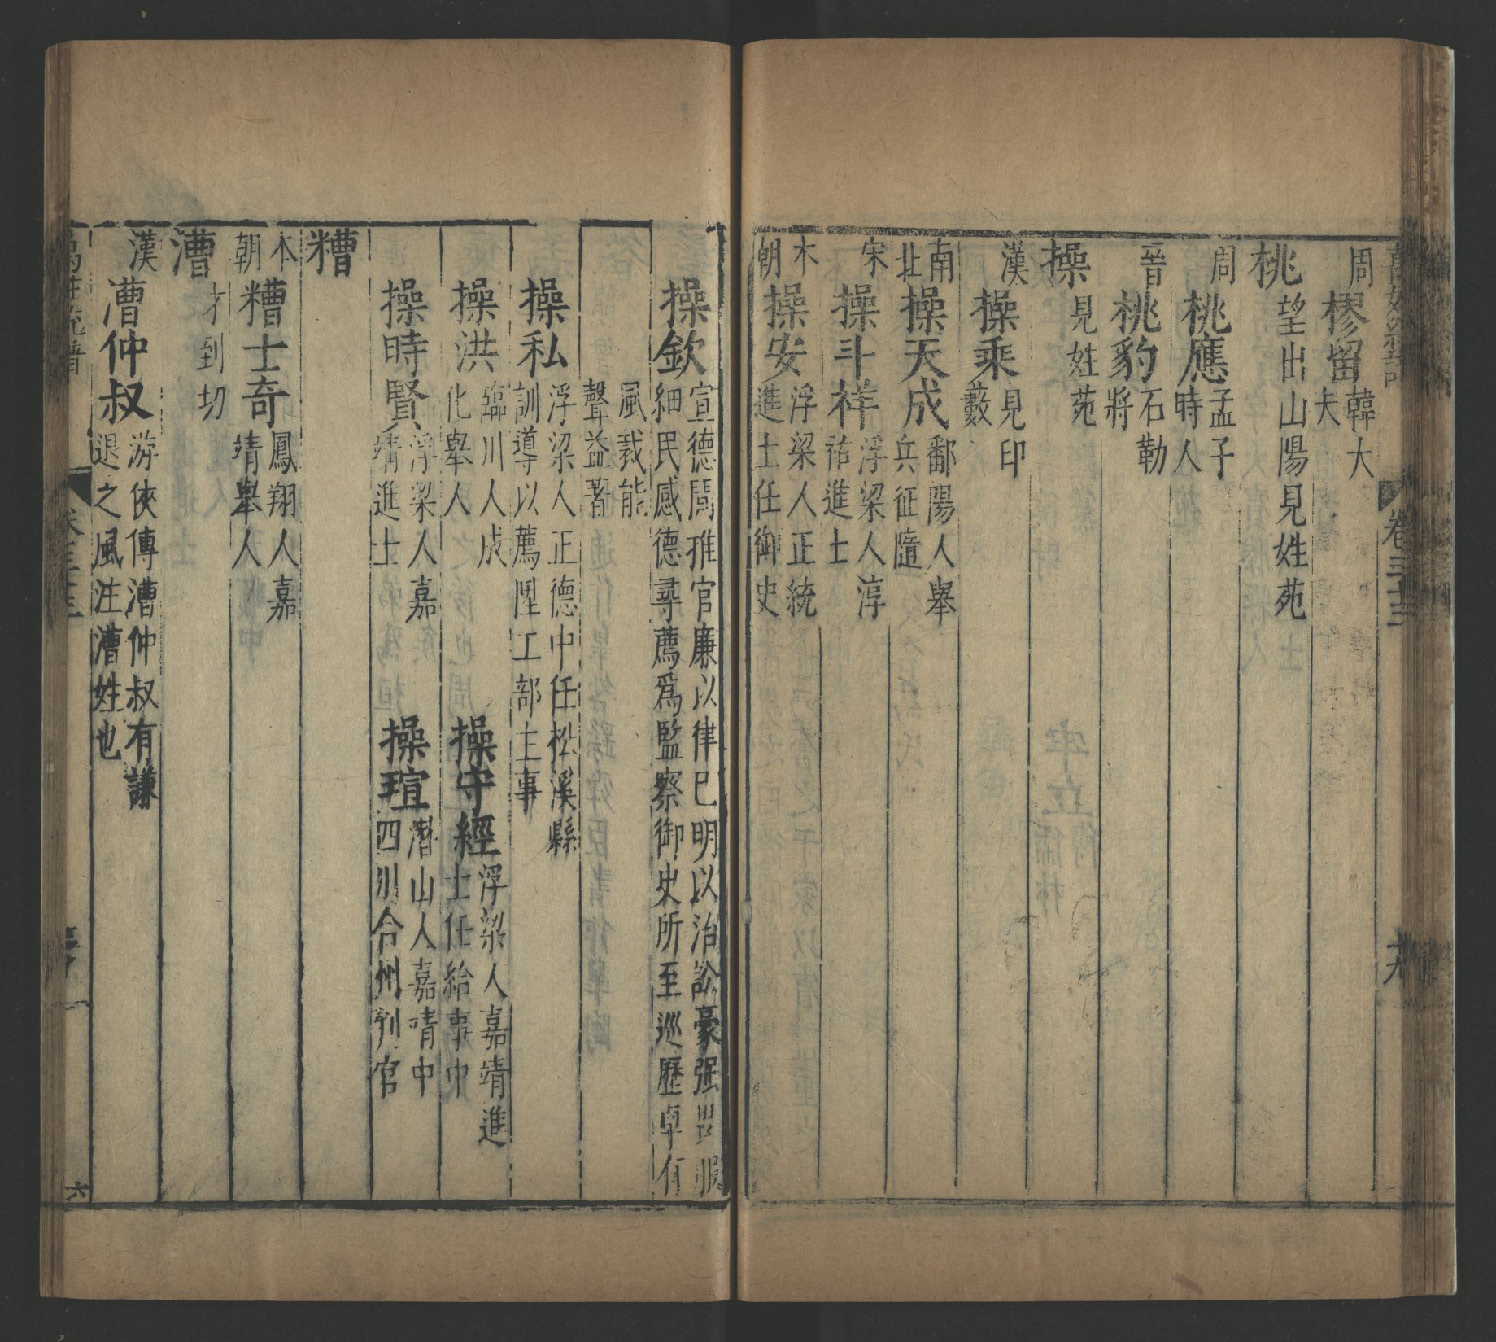 周 樛留 韓大夫
桃 望出山陽見姓苑
周 桃應 孟子時人
晉 桃豹 石勒將
操 見姓苑
漢 操乘 見印藪
南北 操天成 鄱陽人舉兵征隨
宋 操斗祥 浮梁人淳祐進士
本朝 操安 浮梁人正統進士任御史
操欽 宣德間推官廉以律已明以治訟豪强畏服細民感德尋薦爲監察御史所至巡歷卓有
風裁能聲益著
操私 浮梁人正德中任松溪縣訓導以薦陞工部主事
操洪 臨川人成化舉人 操守經 浮梁人嘉靖進士任給事中
操時賢 浮梁人嘉靖進士 操瑄 潛山人嘉靖中四川合州判官
糟
本朝 糟士奇 鳳翔人嘉靖舉人
漕 才到切
漢 漕仲叔 游俠傳漕仲叔有謙退之風注漕姓也
卷
六